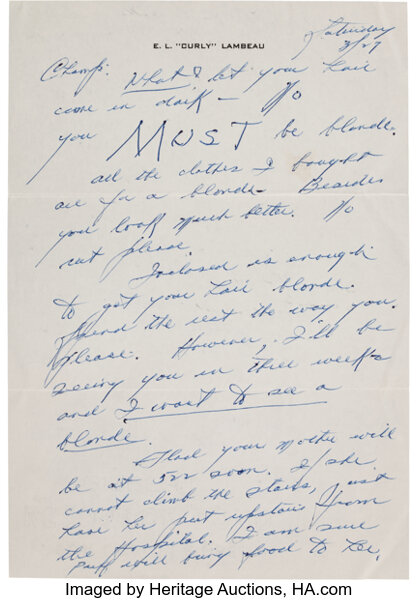 E. L. "CURLY" LAMBEAU
Saturday
3/27
Champ:
What! let your hair
come in dark — No
you MUST be blonde.
all the clothes I bought
are for a blonde. Besides
you look much better. No
cut please.
Inclosed is enough
to get your hair blonde.
Spend the rest the way you
please. However, I'll be
seeing you in three weeks
and I want to see a
blonde.
Glad your Mother will
be at 522 soon. If she
cannot climb the stairs, just
have her put upstairs from
the Hospital. I am sure
will bring food to her,
Imaged by Heritage Auctions, HA.com